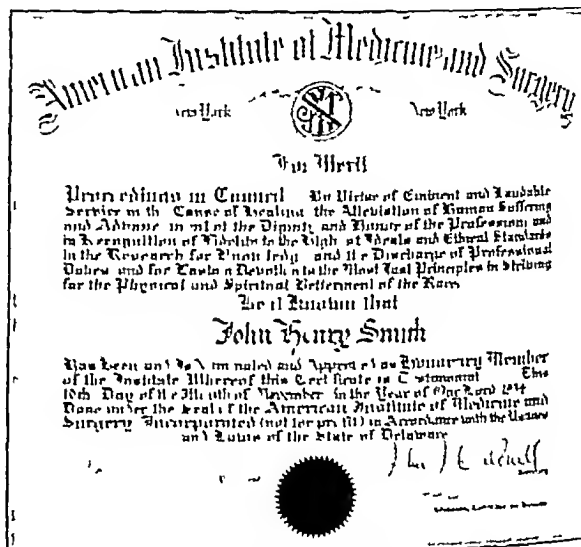 American Institute of Medicine and Surgery
New York New York
For Merit
Proceedings in Council By Virtue of Eminent and Laudable
Service in the Cause of Healing the Alleviation of Human Suffering
and Advancement of the Dignity and Honor of the Profession; and
in Recognition of Fidelity to the Highest Ideals and Ethical Standards
in the Research for Knowledge and the Discharge of Professional
Duties and for Devotion to the Most Just Principles in Striving
for the Physical and Spiritual Betterment of the Race
Be it Known that
John Henry Smith
Has Been and Is Nominated and Appointed as Honorary Member
of the Institute Whereof this Certificate is Testimonial This
10th Day of the Month of November in the Year of Our Lord 1934
Done under the Seal of the American Institute of Medicine and
Surgery Incorporated (not for profit) in Accordance with the Usages
and Laws of the State of Delaware